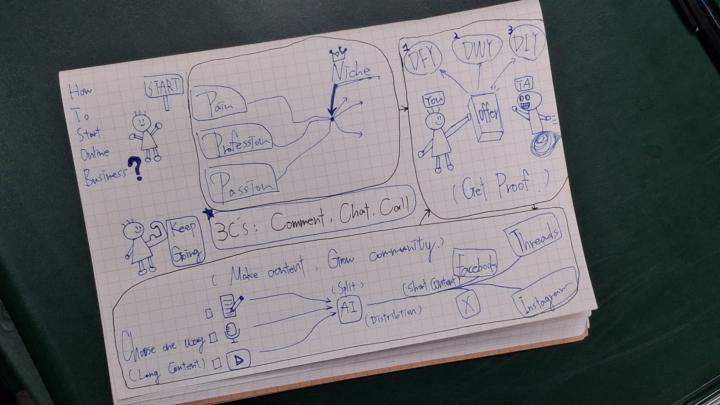 How
To
Start
Online
Business?
START
Pain
Profession
Passion
Niche
1 DFY
2 DWY
3 DIY
You
offer
TA
(Get Proof.)
Keep
Going
3C's: Comment, Chat, Call
(Make content, Grow community.)
Choose one way
(Long Content)
(Split)
AI
(Distribution)
(Short Content)
Facebook
Threads
X
Instagram